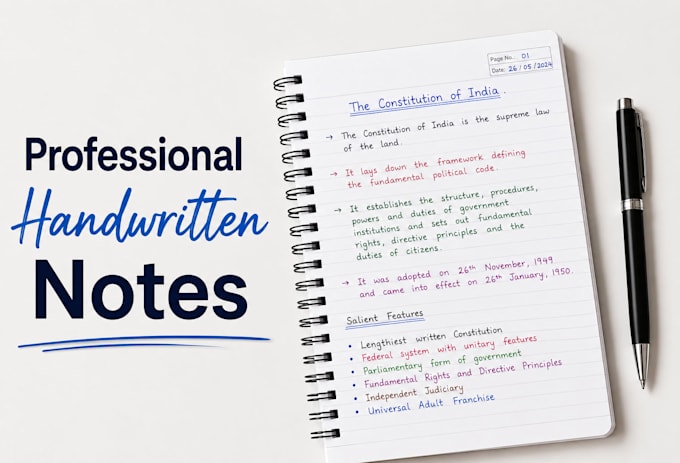 Professional
Handwritten
Notes
Page No.: 01
Date: 26/05/2024
The Constitution of India.
→ The Constitution of India is the supreme law
of the land.
→ It lays down the framework defining
the fundamental political code.
→ It establishes the structure, procedures,
powers and duties of government
institutions and sets out fundamental
rights, directive principles and the
duties of citizens.
→ It was adopted on 26th November, 1949
and came into effect on 26th January, 1950.
Salient Features
• Lengthiest written Constitution
• Federal system with unitary features
• Parliamentary form of government
• Fundamental Rights and Directive Principles
• Independent Judiciary
• Universal Adult Franchise